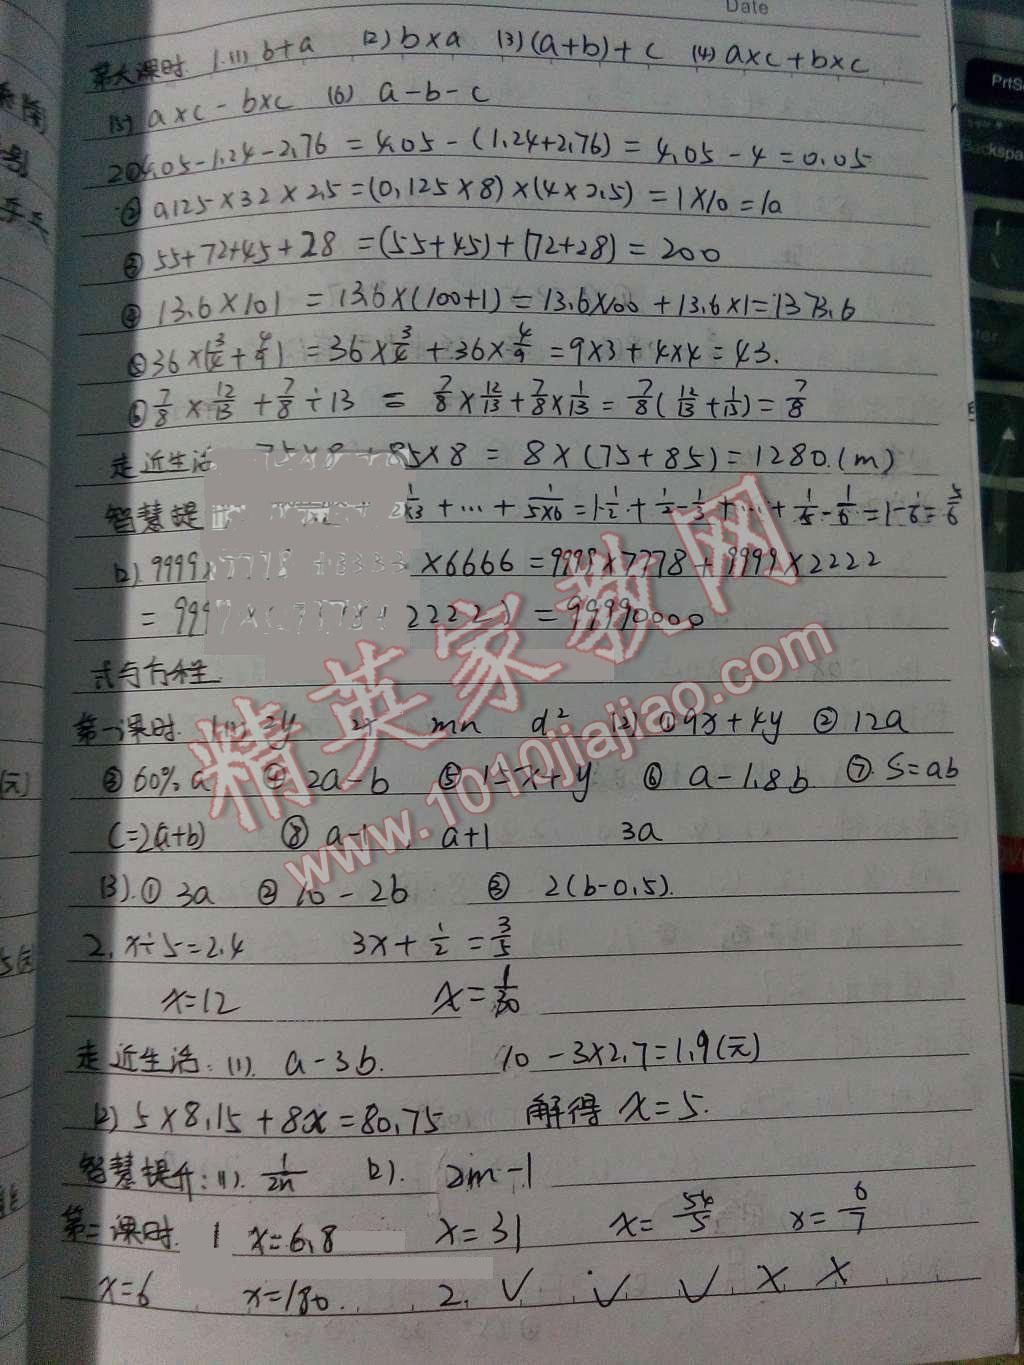 Date
第六课时. 1.(1) b+a (2) b×a (3) (a+b)+c (4) a×c+b×c
(5) a×c-b×c (6) a-b-c
2①4.05-1.24-2.76=4.05-(1.24+2.76)=4.05-4=0.05
② 0.125×32×2.5=(0.125×8)×(4×2.5)=1×10=10
③ 55+72+45+28=(55+45)+(72+28)=200
④ 13.6×101=13.6×(100+1)=13.6×100+13.6×1=1373.6
⑤ 36×(3/4+4/9)=36×3/4+36×4/9=9×3+4×4=43.
⑥ 7/8×12/13+7/8÷13=7/8×12/13+7/8×1/13=7/8(12/13+1/13)=7/8
走近生活 75×8+85×8=8×(75+85)=1280.(m)
智慧提 2×3+…+1/5×6=1-1/2+1/2-1/3+…+1/5-1/6=1-1/6=5/6
(2).9999×7778+3333×6666=9999×7778+9999×2222
=9999×(7778+2222)=99990000
式与方程
第一课时. 1.(1) 2x mn d² (2) ①9x+4y ② 12a
③ 60% a ④ 2a-b ⑤ 15-x+y ⑥ a-1.8b ⑦. S=ab
C=2(a+b) ⑧ a-1 a+1 3a
(3).① 3a ② 10-2b ③ 2(b-0.5).
2. x÷5=2.4 3x+1/2=3/5
x=12 x=1/30
走近生活.(1). a-3b. 10-3×2.7=1.9(元)
(2) 5×8.15+8x=80.75 解得 x=5.
智慧提升:(1). 1/2n (2). 2m-1
第二课时. 1 x=6.8 x=31 x=54/5 x=6/7
x=6 x=180. 2. ✓ ✓ ✓ × ×
PrtSc
Backspa
精英家教网
www.1010jiajiao.com